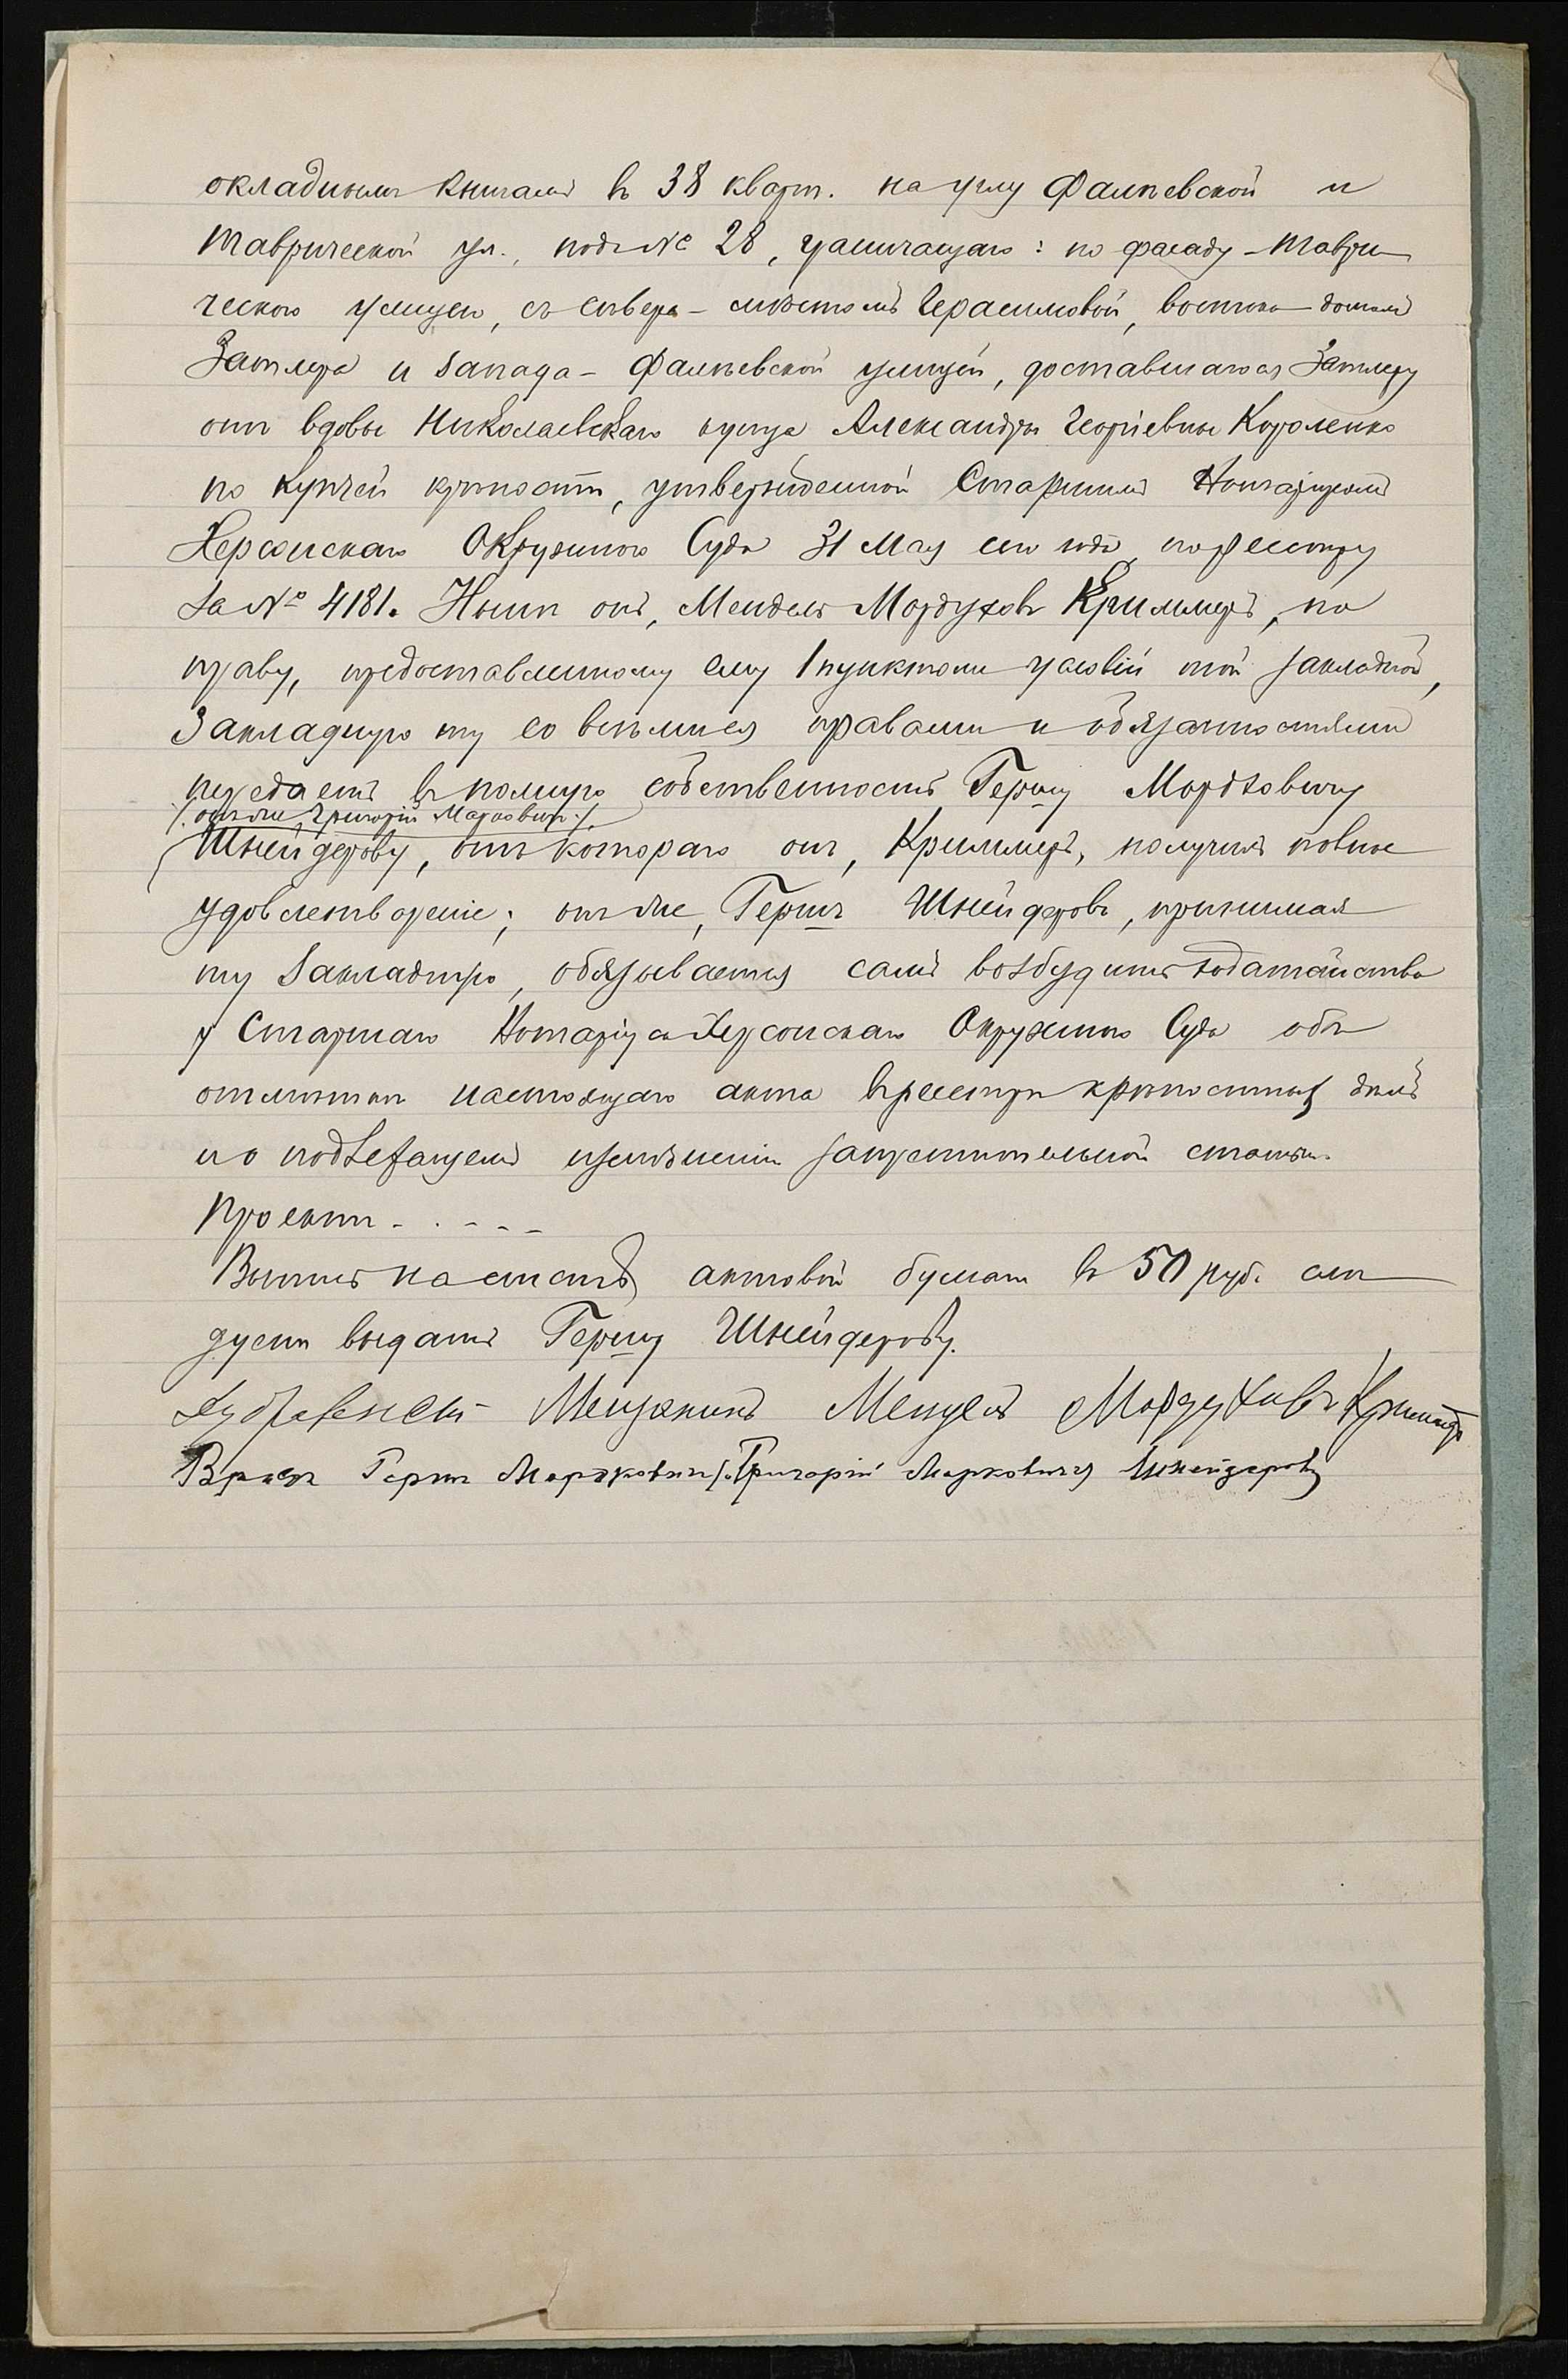 окладнымъ книгамъ въ 38 кварт. на углу Фалѣевской и
Таврической ул., подъ № 28, граничащаго: по фасаду – Таври
ческою улицею, съ сѣвера – мѣстомъ Герасимовой, востока домомъ
Затлера и запада – Фалѣевской улицей, доставшагося Затлеру
отъ вдовы Николаевскаго купца Александры Георгіевны Короленко
по купчей крѣпости, утвержденной Старшимъ Нотаріусомъ
Херсонскаго Окружнаго Суда 31 Мая сего года, по реестру
за № 4181. Нынѣ онъ, Мендель Мордуховъ Криммеръ, по
праву, предоставленному ему 1 пунктомъ условій той закладной,
закладную ту со всѣми ея правами и обязанностями
передаетъ въ полную собственность Гершу Мордковичу
/: онъ же Григорій Марковичъ :/
Шнейдерову, отъ котораго онъ, Криммеръ, получилъ полное
удовлетвореніе; онъ же, Гершъ Шнейдеровъ, принимая
ту закладную, обязывается самъ возбудить ходатайство
у Старшаго Нотаріуса Херсонскаго Окружнаго Суда объ
отмѣткѣ настоящаго акта въ реестрѣ крѣпостныхъ дѣлъ
и о подлежащемъ измѣненіи запретительной статьи.
Проектъ . . - - -
Выпись на актовой бумагѣ въ 50 руб. слѣ
дуетъ выдать Гершу Шнейдерову.
Мещанинъ Мендель Мордуховъ Криммеръ
Врачъ Гершъ Мордковичъ /: Григорій Марковичъ Шнейдеровъ